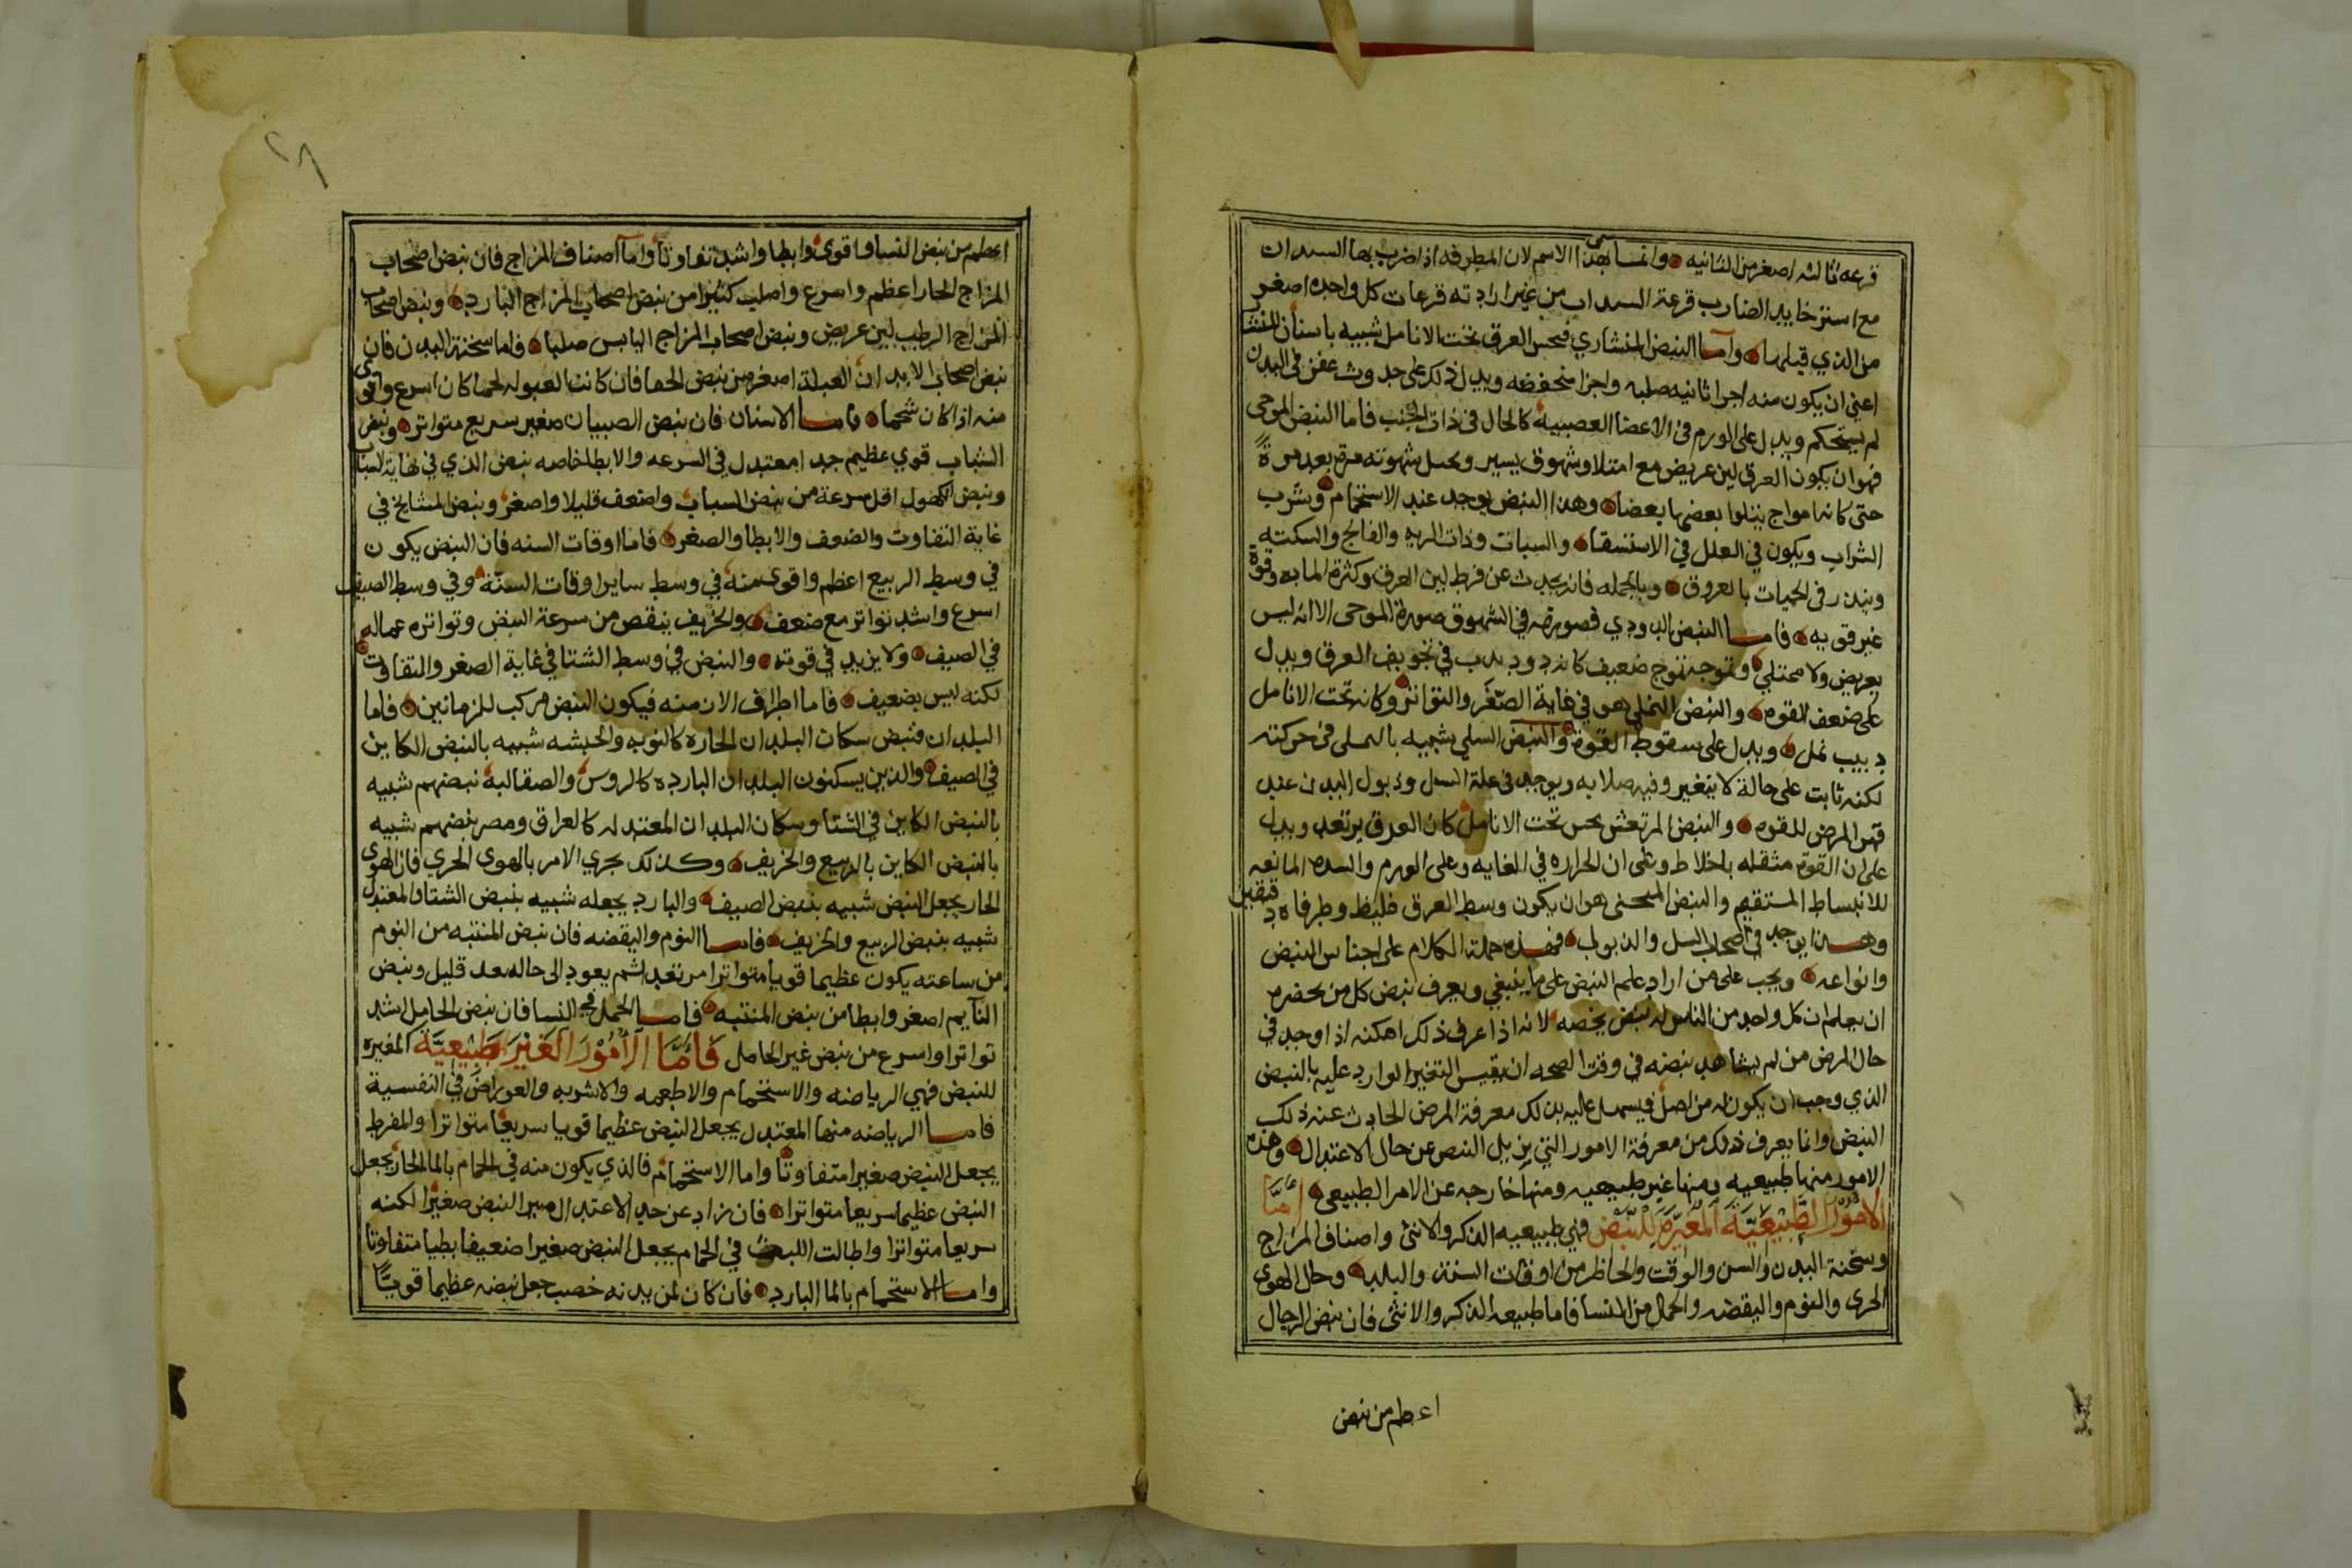 قرعه ثالثه اصغر من الثانيه وانما سمى بهذا الاسم لان المطرقه اذا ضرب بها السندان
مع استرخا يد الضارب قرعة السندان من غير ارادته قرعات كل واحده اصغر
من الذي قبلها واما النبض المنشاري فحس العرق تحت الانامل شبيه باسنان المنشا
اعني ان يكون منه اجزا ثانيه صلبه واجزا منخفضه ويدل ذلك على حدوث عفن في البدن
لم يستحكم ويدل على الورم في الاعضا العصبيه كالحال في ذات الجنب فاما النبض الموجى
فهو ان يكون العرق لين عريض مع امتلا وشهوق يسير وتحمل شهوته مرة بعد مرة
حتى كانه امواج يتلوا بعضها بعضا وهذا النبض يوجد عند الاستحمام وشرب
الشراب ويكون في العلل في الاستسقا والسبات وذات الريه والفالج والسكته
وينذر في الحميات بالعروق وبالجمله فانه يحدث عن فرط لين العرق وكثرة الماده وقوة
غير قويه فاما النبض الدودي فصورته في الشهوق صورة الموجى الا انه ليس
بعريض ولا ممتلي وتموجه تموج ضعيف كانه دود يدب في تجويف العرق ويدل
على ضعف القوه والنبض النملي هو في غاية الصغر والتواتر وكانه تحت الانامل
دبيب نمل ويدل على سقوط القوة والنبض السلي شبيه بالنملى في حركته
لكنه ثابت على حالة لا يتغير وفيه صلابه ويوجد في علة السل وذبول البدن عند
قهر المرض للقوه والنبض المرتعش يحس تحت الانامل كان العرق يرتعد ويدل
على ان القوة مثقله باخلاط وعلى ان الحراره في الغايه وعلى الورم والسده المانعه
للانبساط المستقيم والنبض المنحنى هو ان يكون وسط العرق غليظ وطرفاه دقيقين
وهذا يوجد في اصحاب السل والذبول فهذه جملة الكلام على اجناس النبض
وانواعه ويجب على من اراد علم النبض على ما ينبغي ويعرف نبض كل من يحضره
ان يعلم ان كل واحد من الناس له نبض يخصه لانه اذا عرف ذلك امكنه اذا وجد في
حال المرض من لم يشاهد نبضه في وقت الصحه ان يقيس التغير الوارد عليه بالنبض
الذي وجب ان يكون له من اصل فيسهل عليه بذلك معرفة المرض الحادث عنه ذلك
النبض وانما يعرف ذلك من معرفة الامور التي يزيل النبض عن حال الاعتدال وهذه
الامور منها طبيعيه ومنها غير طبيعيه ومنها خارجه عن الامر الطبيعي امّا
الامُوُر الطَبِيْعَيّة المُغَيِّرَة لِلنَّبْض فهي طبيعيه الذكر والانثى واصناف المزاج
وسحنة البدن والسن والوقت والحاظر من اوقات السنة والبلد وحال الهوى
الحرى والنوم واليقضه والحمل من النسا فاما طبيعه الذكر والانثى فان نبض الرجال
اعظم من نبض
اعظم من نبض النسا واقوى وابطا واشد تفاوتا واما اصناف المزاج فان نبض اصحاب
المزاج الحار اعظم واسرع واصلب كثيرا من نبض اصحاب المزاج البارد ونبض اصحاب
المزاج الرطب لين عريض ونبض اصحاب المزاج اليابس صلبا فاما سخنة البدن فان
نبض اصحاب الابدان العبلة اصغر من نبض الحفا فان كانت العبوله لحما كان اسرع واقوى
منه اذا كان شحما فاما الاسنان فان نبض الصبيان صغير سريع متواتر ونبض
الشباب قوي عظيم جدا معتدل في السرعه والابطا خاصه نبض الذي في نهاية الشباب
ونبض الكهول اقل سرعة من نبض الشباب واضعف قليلا واصغر ونبض المشايخ في
غاية التفاوت والضعف والابطا والصغر فاما اوقات السنه فان النبض يكون
في وسط الربيع اعظم واقوى منه في وسط ساير اوقات السنّة وفي وسط الصيف
اسرع واشد تواتر مع ضعف والخريف ينقص من سرعة النبض وتواتره عماله
في الصيف ولا يزيد في قوته والنبض في وسط الشتا في غاية الصغر والتفاوت
لكنه ليس بضعيف فاما اطراف الازمنه فيكون النبض مركب للزمانين فاما
البلدان فنبض سكان البلدان الحاره كالنوبه والحبشه شبيه بالنبض الكاين
في الصيف والذين يسكنون البلدان البارده كالروس والصقالبة نبضهم شبيه
بالنبض الكاين في الشتا وسكان البلدان المعتدله كالعراق ومصر نبضهم شبيه
بالنبض الكاين بالربيع والخريف وكذلك يجري الامر بالهوى الحري فان الهوى
الحار يجعل النبض شبيه بنبض الصيف والبارد يجعله شبيه بنبض الشتا والمعتدل
شبيه بنبض الربيع والخريف فاما النوم واليقضه فان نبض المنتبه من النوم
من ساعته يكون عظيما قويا متواترا مرتعدا ثم يعود الى حاله بعد قليل ونبض
النآيم اصغر وابطا من نبض المنتبه فاما الحمل في النسا فان نبض الحامل اشد
تواترا واسرع من نبض غير الحامل فَامَّا الاُمُوْر الغَيْر طَبِيْعِيَّة المغيره
للنبض فهي الرياضه والاستحمام والاطعمه والاشربه والعوراض في النفسية
فاما الرياضه منها المعتدل يجعل النبض عظيما قويا سريعا متواترا والمفرط
يجعل النبض صغيرا متفاوتا واما الاستحمام فالذي يكون منه في الحمام بالما الحار يجعل
النبض عظيما سريعا متواترا فان زاد عن حد الاعتدال صير النبض صغيرا لكنه
سريعا متواترا واطالت اللبث في الحمام يجعل النبض صغيرا ضعيفا بطيا متفاوتا
واما الاستحمام بالما البارد فان كان لمن بدنه خصب جعل نبضه عظيما قويّا